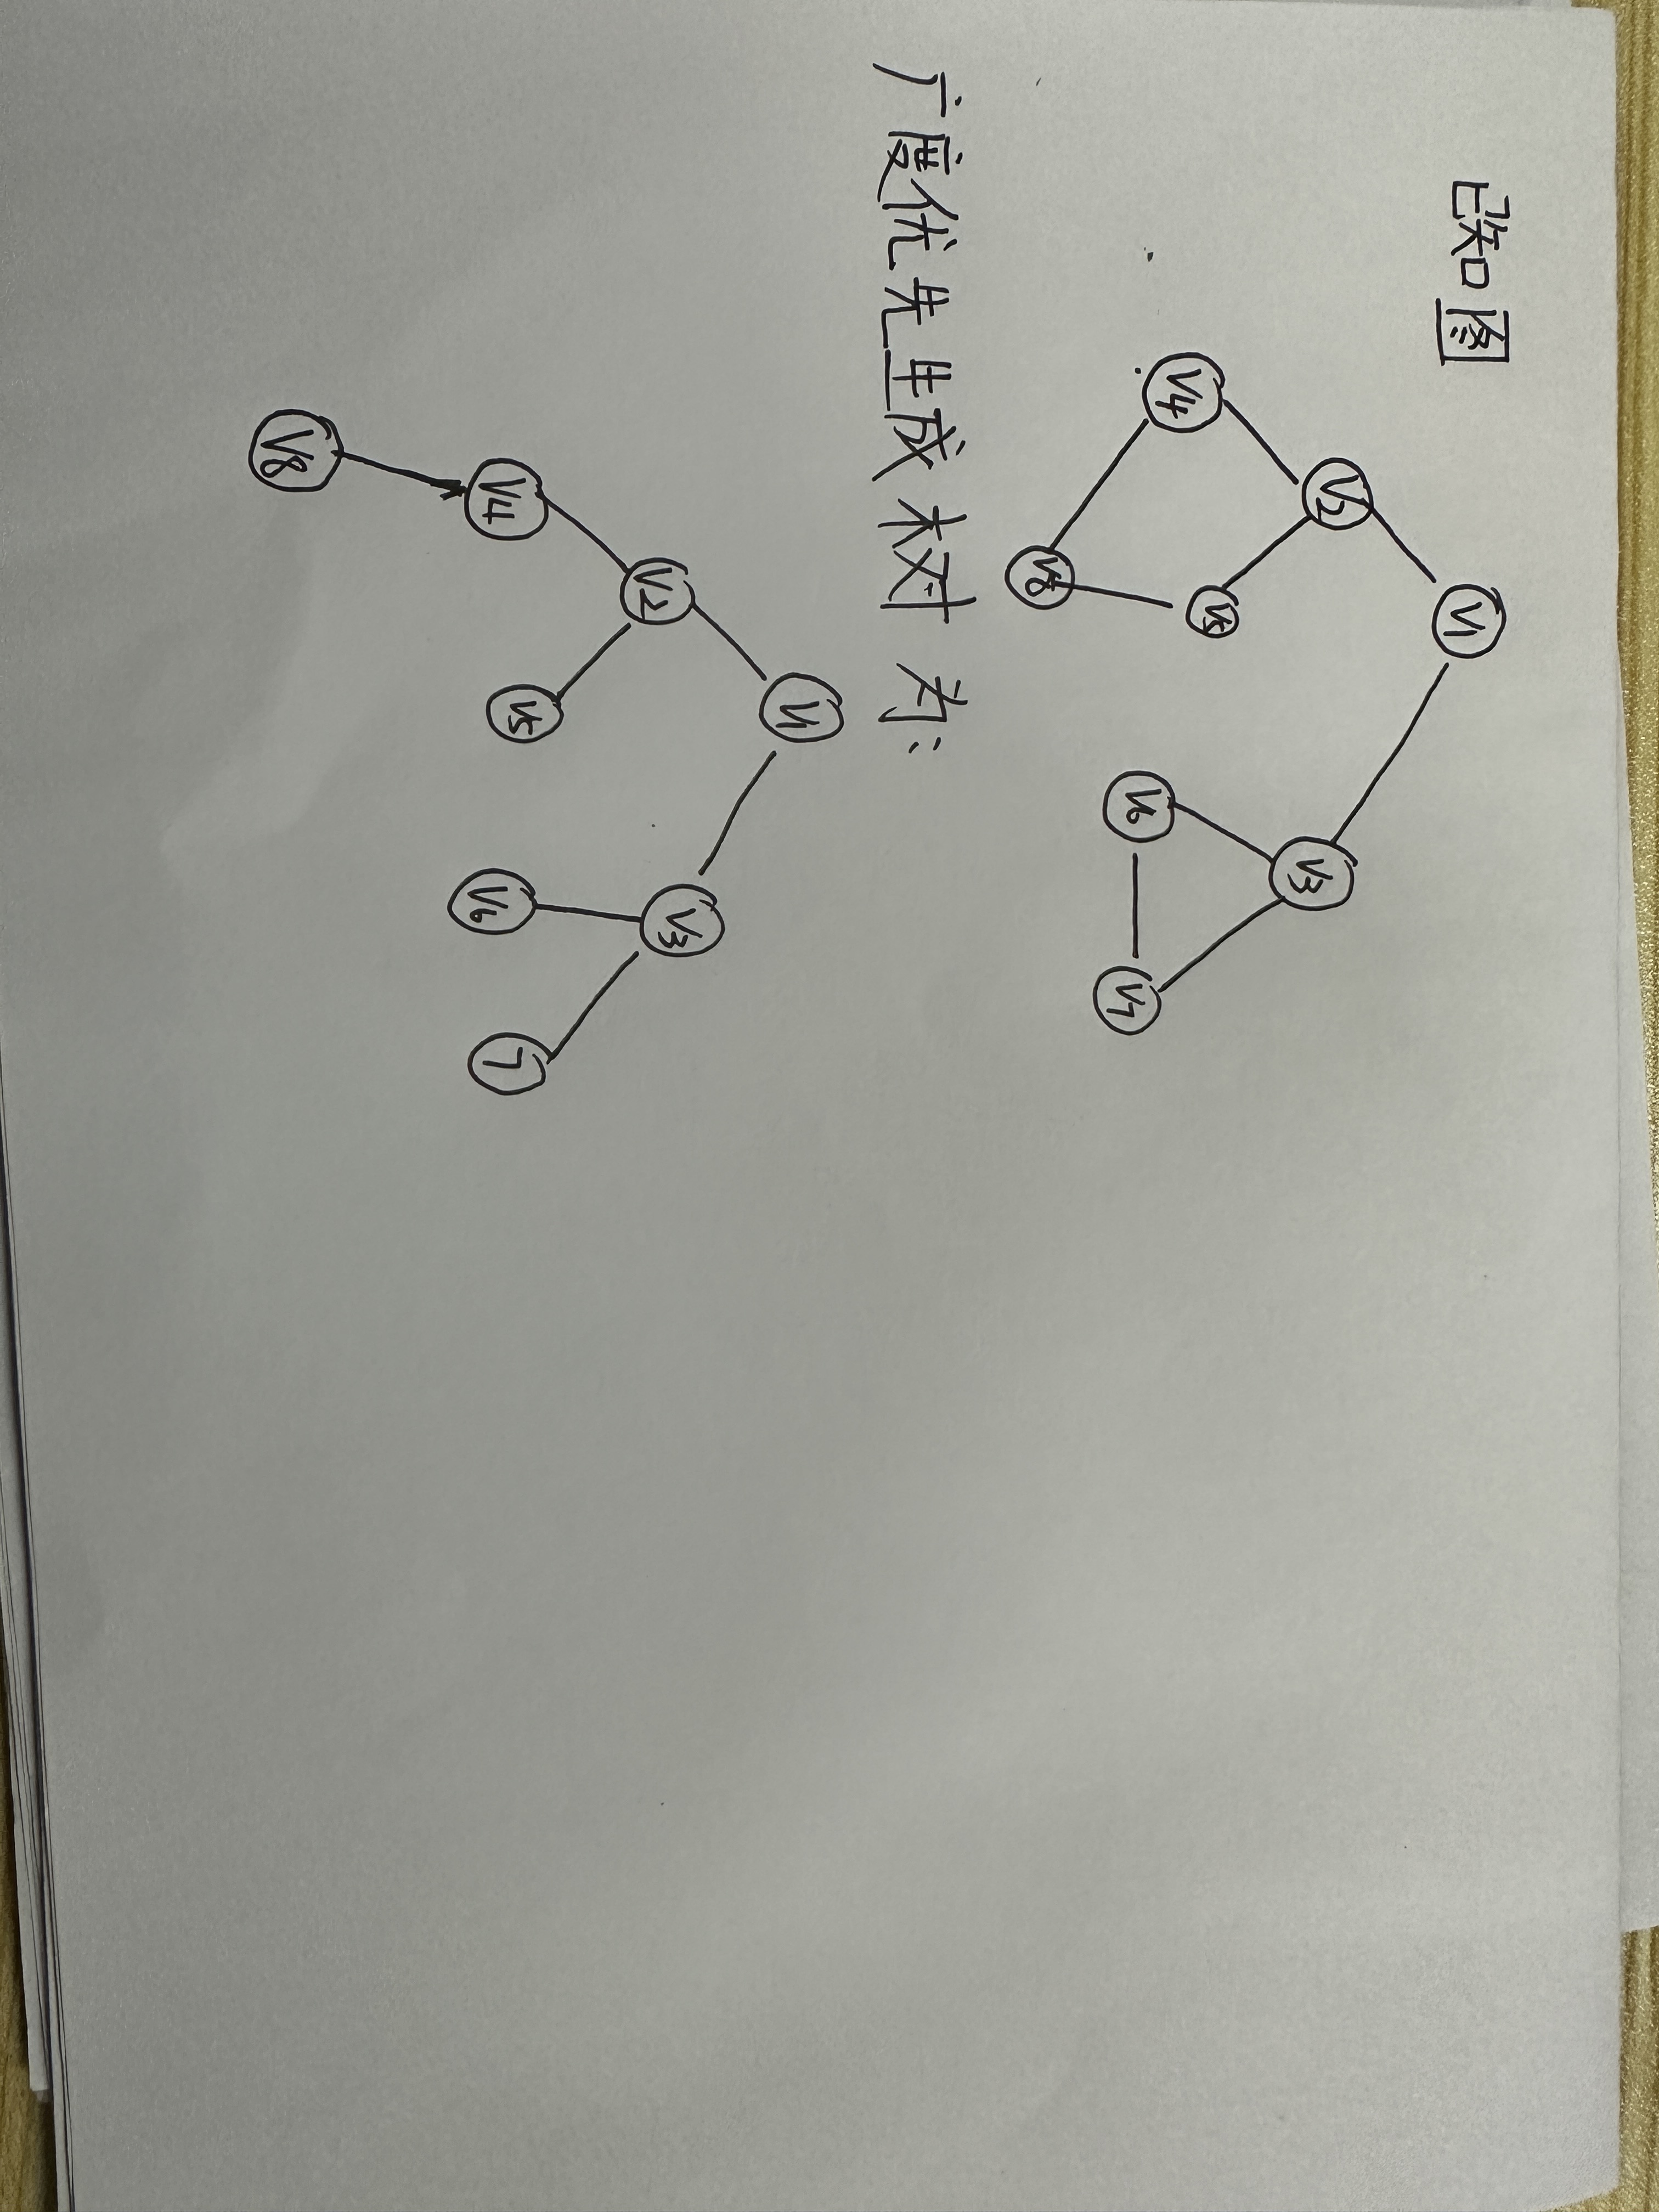 已知图
V1
V2
V3
V4
V5
V6
V7
V8
广度优先生成树 为:
V1
V2
V3
V4
V5
V6
7
V8